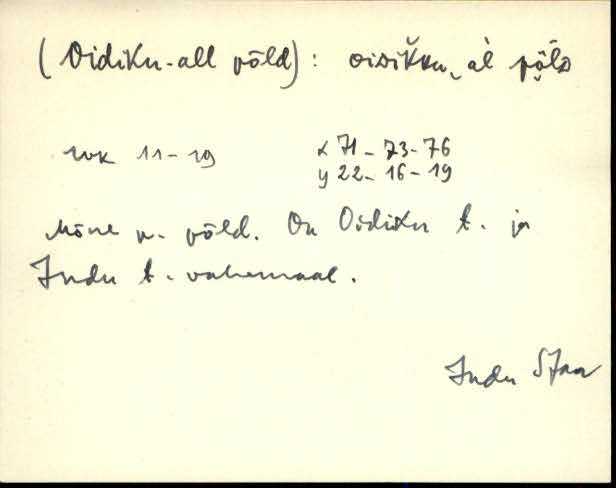 (Oidiku-all põld): oiʙikku, al põlʙ
rvk 11-19 x 71-73-76
y 22-16-19
Mõne v. põld. On Oidiku t. ja
Indu t. vahemaal.
Indu